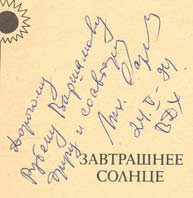 Дорогому
Рубену Варшамову
другу и соавтору
24.V-94
ЗАВТРАШНЕЕ
СОЛНЦЕ